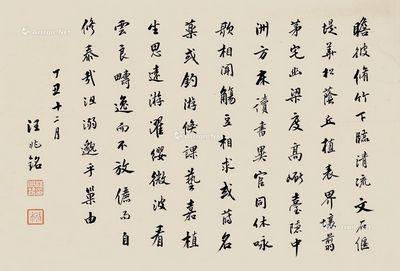 瞻彼脩竹下臨清流文石偃
堤華松蔭丘植表界壕翦
茅完幽梁度高峻臺隱中
洲方床讀書異宦同休咏
歌相聞觴互相求或蒔名
藥或釣游倏課藝嘉植
生思遠游濯纓微波看
雲良疇逸而不放儉而自
修泰哉沮溺邈乎巢由
丁丑十二月
汪兆銘